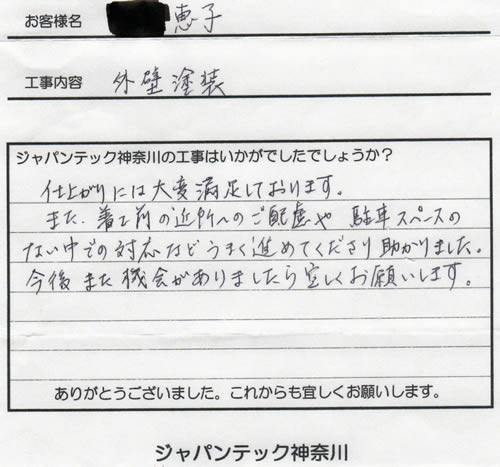 お客様名 恵子
工事内容 外壁塗装
ジャパンテック神奈川の工事はいかがでしたでしょうか？
仕上がりには大変満足しております。
また、着工前の近所へのご配慮や 駐車スペースの
ない中での対応などうまく進めてくださり助かりました。
今後また機会がありましたら宜しくお願いします。
ありがとうございました。これからも宜しくお願いします。
ジャパンテック神奈川